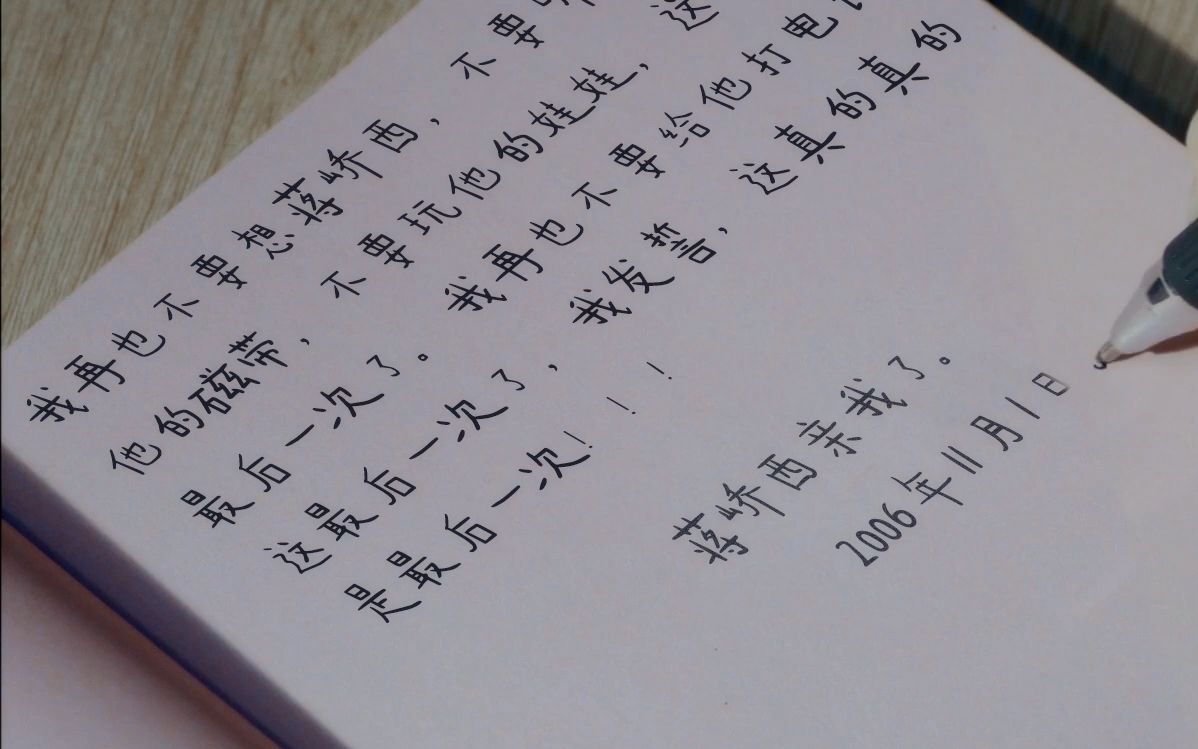 我再也不要想蒋峤西，不要
他的磁带，不要玩他的娃娃，这
最后一次了。我再也不要给他打电
这最后一次了，我发誓，这真的真的
是最后一次！！！
蒋峤西亲我了。
2006年11月1日